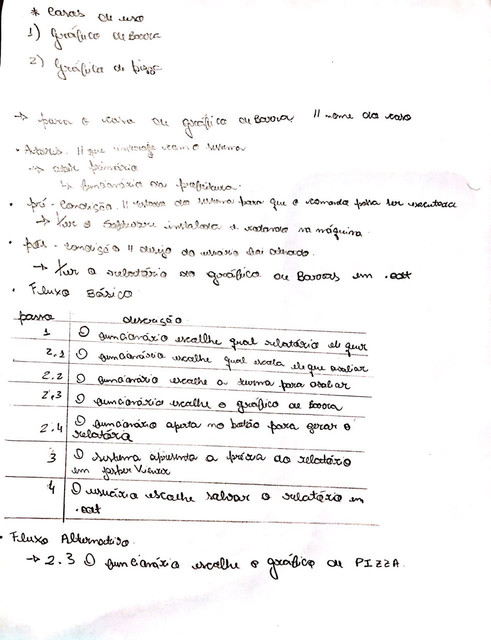 * Casos de uso
1) Gráfico de Barra
2) Gráfico de pizza
→ para o caso de gráfico de Barra // nome do caso
• Atores. // que interage com o sistema
→ ator primário
↳ funcionário da prefeitura.
• pré-condição // estado do sistema para que o comando possa ser executado
→ Ter o software instalado e rodando na máquina.
• pós-condição // desejo do usuário foi atendido.
→ Ter o relatório do gráfico de Barras em .odt
• Fluxo Básico
passo descrição
1 O funcionário escolhe qual relatório ele quer
2.1 O funcionário escolhe qual escola ele que avaliar
2.2 O funcionário escolhe a turma para avaliar
2.3 O funcionário escolhe o gráfico de Barra
2.4 O funcionário aperta no botão para gerar o
relatório
3 O sistema apresenta a prévia do relatório
em Jasper Viewer
4 O usuário escolhe salvar o relatório em
.odt
• Fluxo Alternativo.
→ 2.3 O funcionário escolhe o gráfico de PIZZA.